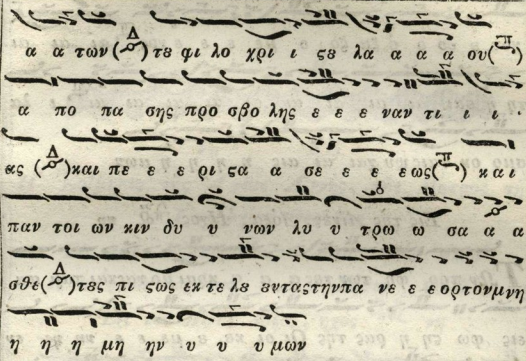 α α των (Δ) τε φι λο χρι ι ϛε λα α α α ου (π)
α πο πα σης προ σβο λης ε ε ε ναν τι ι ι .
ας (Δ) και πε ε ε ρι ϛα α σε ε ε εως (π) κ α ι
παν τοι ων κιν δυ υ νων λυ υ τρω ω σα α α
σθε (Δ) τες πι ϛως εκ τε λε ενταςτηνπα νε ε ε ορτονμνη
η η η μη ην υ υ υ μων